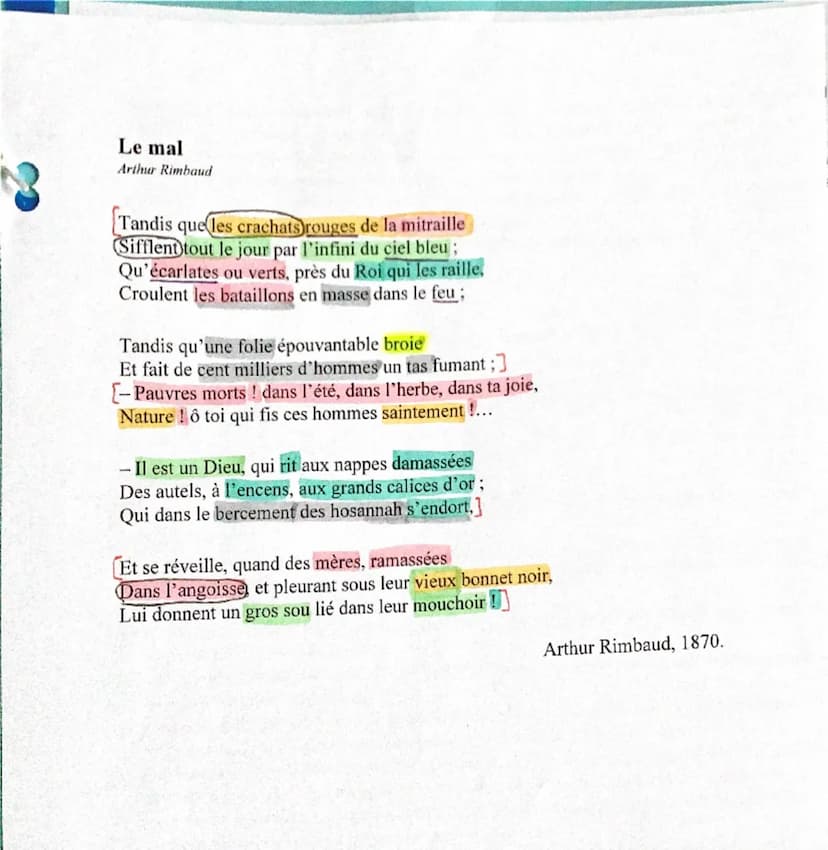 Le mal
Arthur Rimbaud
Tandis que les crachats rouges de la mitraille
Sifflent tout le jour par l'infini du ciel bleu ;
Qu'écarlates ou verts, près du Roi qui les raille,
Croulent les bataillons en masse dans le feu ;
Tandis qu'une folie épouvantable broie
Et fait de cent milliers d'hommes un tas fumant ;
– Pauvres morts ! dans l'été, dans l'herbe, dans ta joie,
Nature ! ô toi qui fis ces hommes saintement !...
– Il est un Dieu, qui rit aux nappes damassées
Des autels, à l'encens, aux grands calices d'or ;
Qui dans le bercement des hosannah s'endort,
Et se réveille, quand des mères, ramassées
Dans l'angoisse, et pleurant sous leur vieux bonnet noir,
Lui donnent un gros sou lié dans leur mouchoir !
Arthur Rimbaud, 1870.